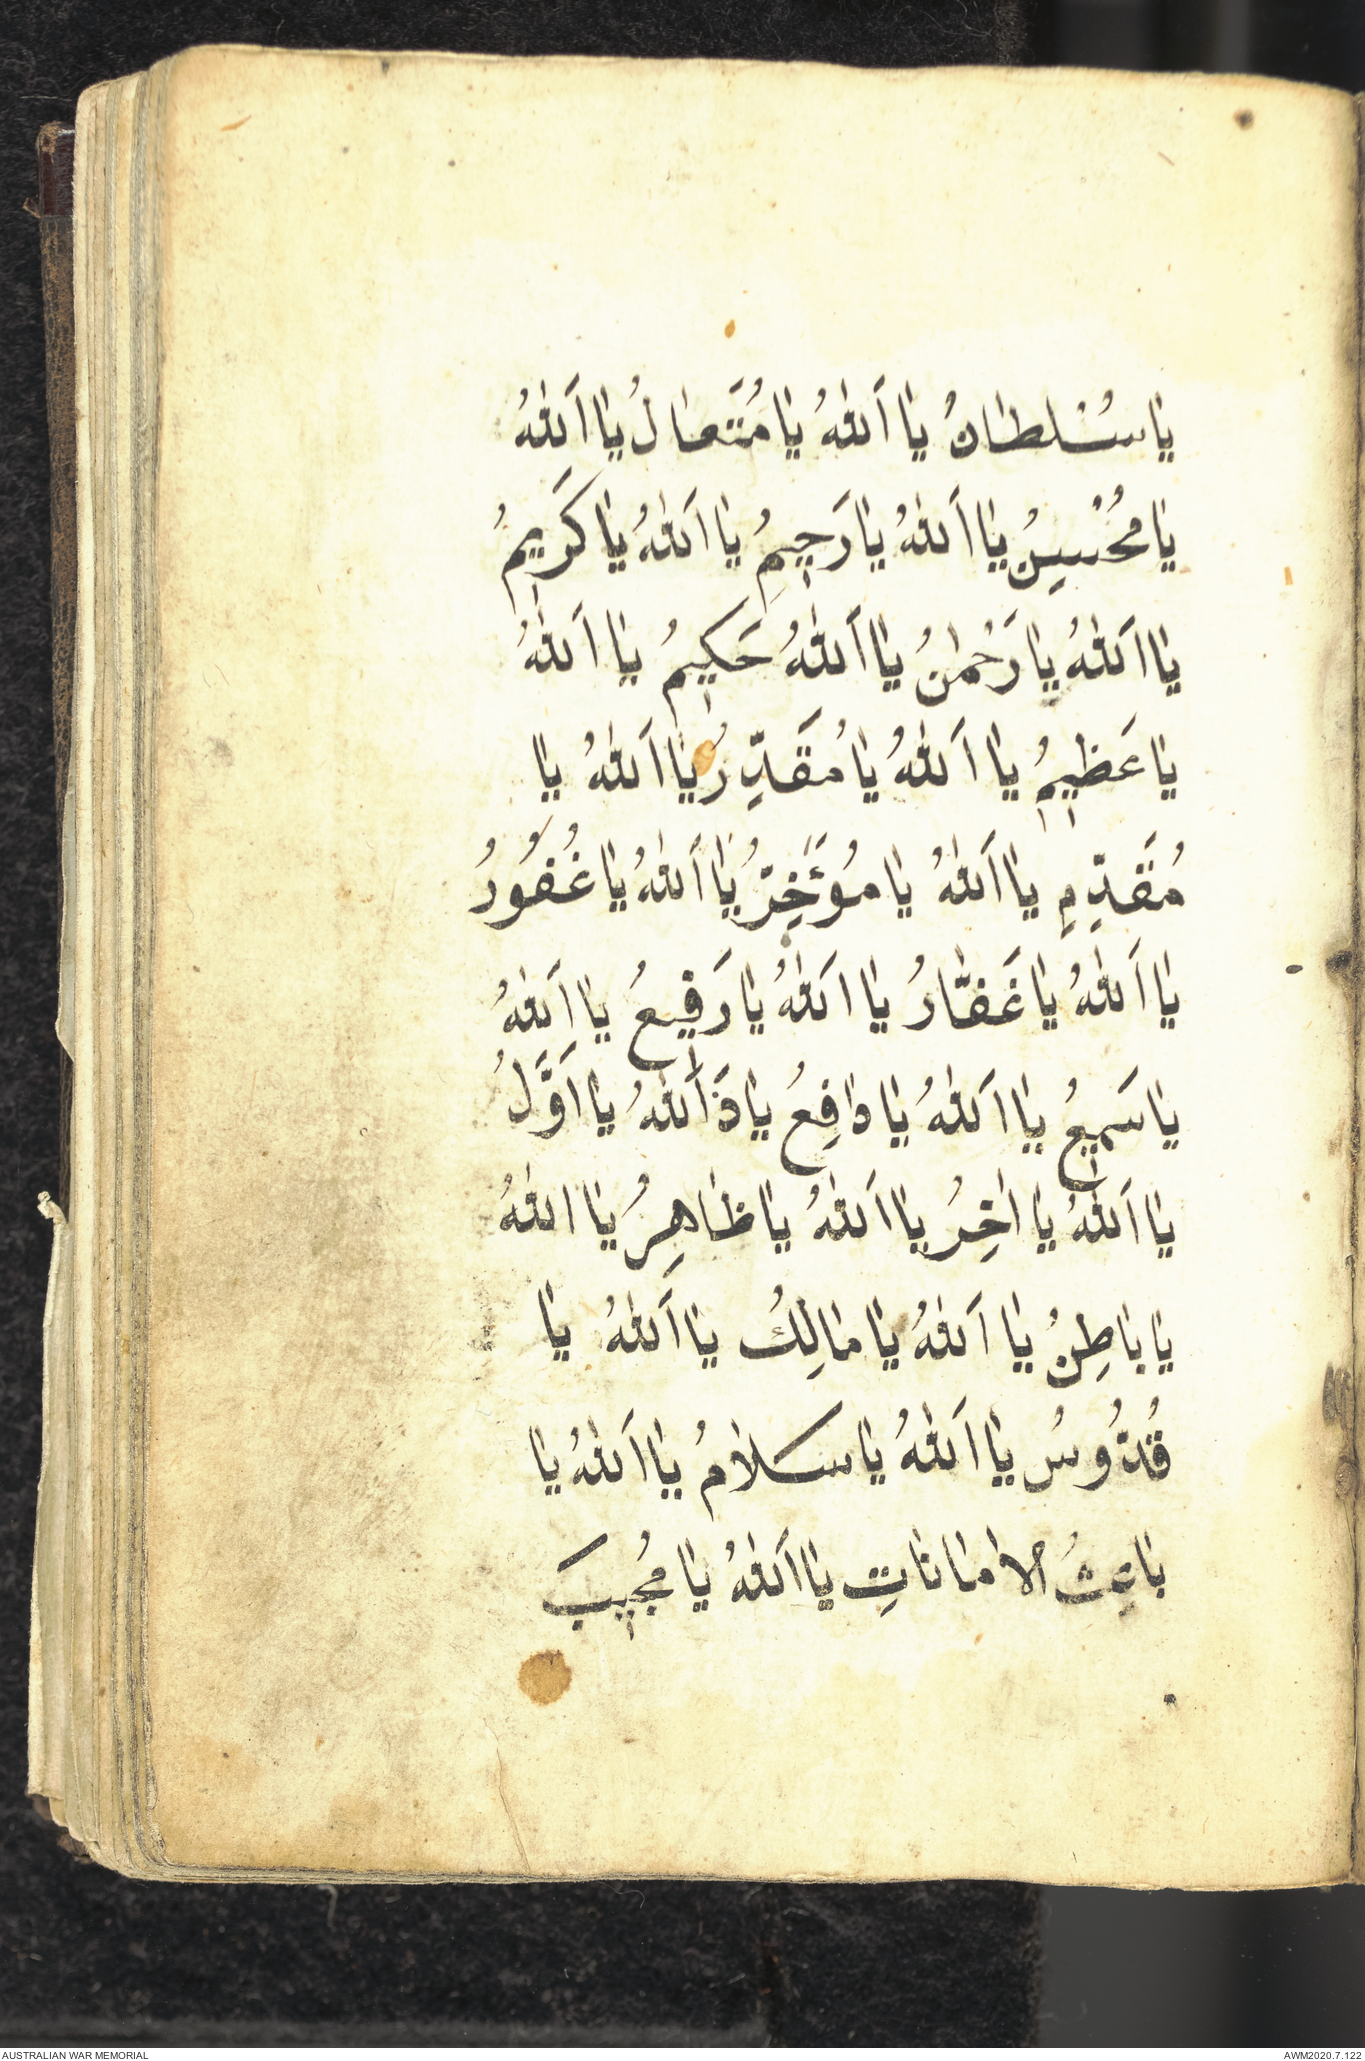 يَا سُلْطَانُ يَا اَللّٰهُ يَا مُتَعَالُ يَا اَللّٰهُ
يَا مُحْسِنُ يَا اَللّٰهُ يَا رَحِيمُ يَا اَللّٰهُ يَا كَرِيمُ
يَا اَللّٰهُ يَا رَحْمٰنُ يَا اَللّٰهُ حَكِيمُ يَا اَللّٰهُ
يَا عَظِيمُ يَا اَللّٰهُ يَا مُقَدِّرُ يَا اَللّٰهُ يَا
مُقَدِّمِ يَا اَللّٰهُ يَا مُؤَخِّرُ يَا اَللّٰهُ يَا غُفُورُ
يَا اَللّٰهُ يَا غَفَّارُ يَا اَللّٰهُ يَا رَفِيعُ يَا اَللّٰهُ
يَا سَمِيعُ يَا اَللّٰهُ يَا دَافِعُ يَا ذَاَللّٰهُ يَا اَوَّلُ
يَا اَللّٰهُ يَا اٰخِرُ يَا اَللّٰهُ يَا ظَاهِرُ يَا اللّٰهُ
يَا بَاطِنُ يَا اَللّٰهُ يَا مَالِكُ يَا اَللّٰهُ يَا
قُدُّوسُ يَا اَللّٰهُ يَا سَلَامُ يَا اَللّٰهُ يَا
بَاعِثُ الْاَمَانَاتِ يَا اَللّٰهُ يَا مُجِيبَ
AUSTRALIAN WAR MEMORIAL
AWM2020.7.122